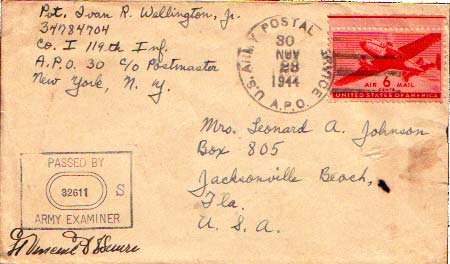 Pvt. Ivan R. Wellington, Jr.
34784704
Co. I 119th Inf.
A.P.O. 30 c/o Postmaster
New York, N. Y.
U.S. ARMY POSTAL SERVICE
30
NOV
28
1944
A.P.O.
AIR 6 MAIL
CENTS
UNITED STATES OF AMERICA
Mrs. Leonard A. Johnson
Box 805
Jacksonville Beach,
Fla.
U. S. A.
PASSED BY
32611 S
ARMY EXAMINER
Vincent